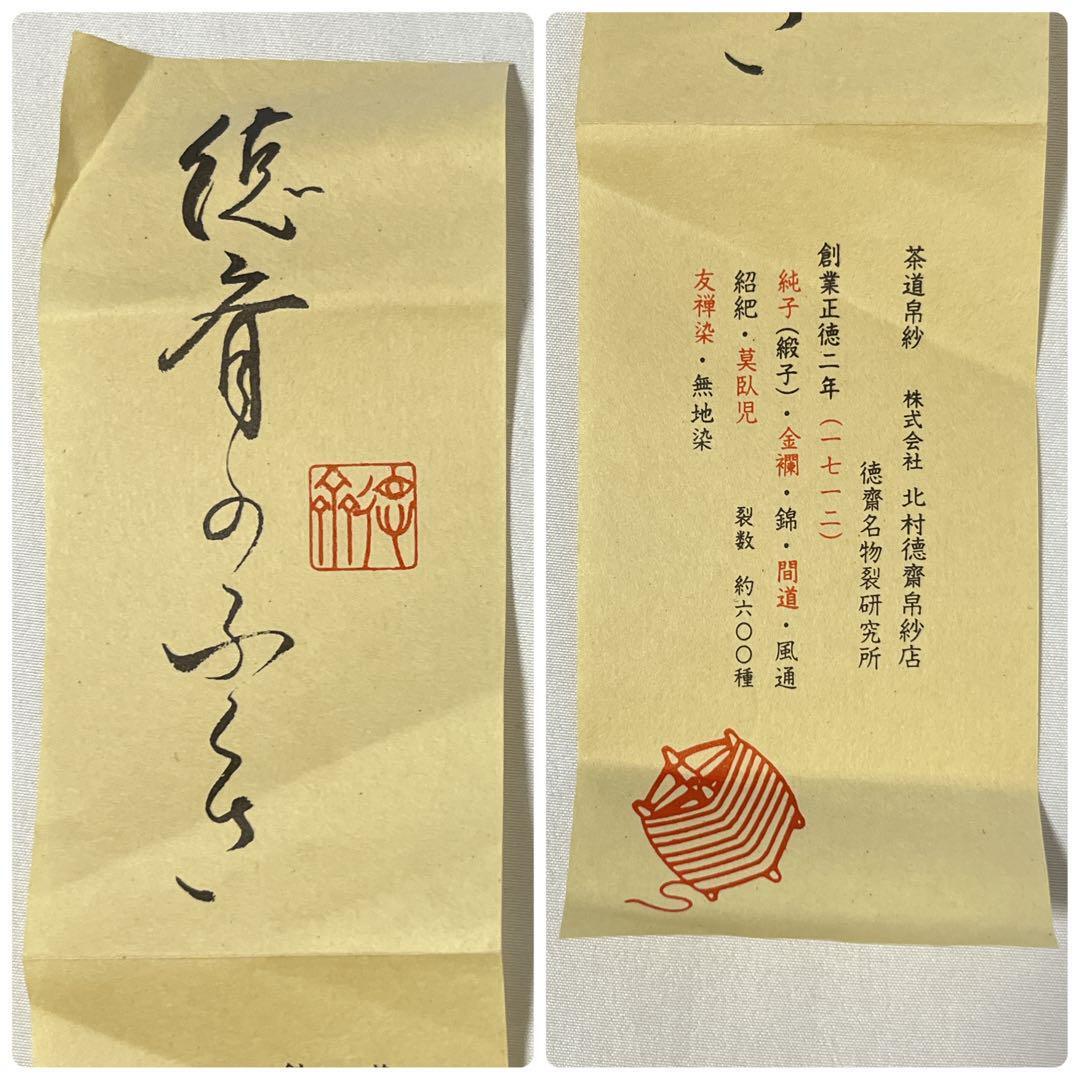 徳斎のふくさ
徳斎
茶道帛紗 株式会社 北村德齋帛紗店
徳齋名物裂研究所
創業正徳二年(一七一二)
純子(緞子)・金襴・錦・間道・風通
紹紦・莫臥児 裂数 約六〇〇種
友禅染・無地染